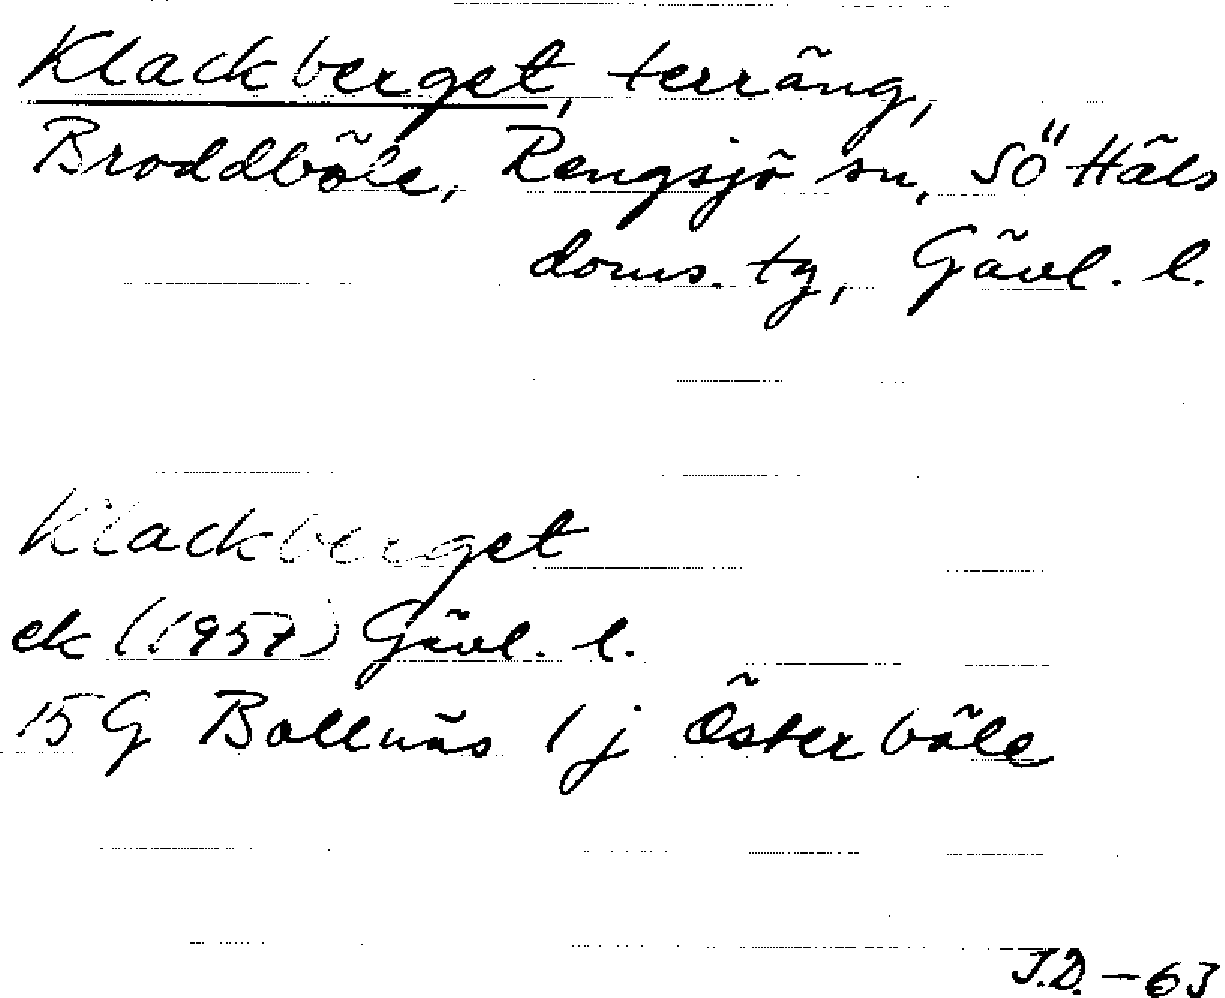 Klackberget, terräng,
Broddböle, Rengsjö sn, SÖ Häls
doms. tg, Gävl. l.
Klackberget
ek (1957) Gävl. l.
15 G Bollnäs 1 j Österböle
J.D. - 63